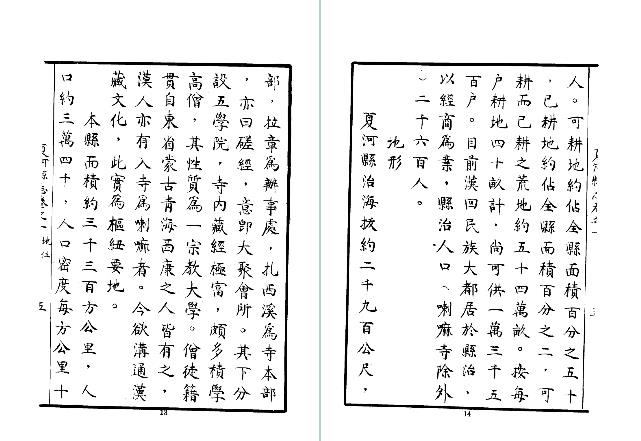 部，拉章為辦事處，扎西溪為寺本部
，亦曰磋經，意卽大聚會所。其下分
設五學院，寺內藏經極富，頗多積學
高僧，其性質為一宗教大學。僧徒籍
貫自東省蒙古青海西康之人皆有之，
漢人亦有入寺為喇嘛者。今欲溝通漢
藏文化，此實為樞紐要地。
本縣面積約三千三百方公里，人
口約三萬四千，人口密度每方公里十
夏河縣志卷之一 地位 五
人。可耕地約佔全縣面積百分之五十
，已耕地約佔全縣面積百分之二，可
耕而已耕之荒地約五十四萬畝。按每
戶耕地四十畝計，尚可供一萬三千五
百戶。目前漢回民族大都居於縣治，
以經商為業，縣治人口（喇嘛寺除外
）二千六百人。
地形
夏河縣治海拔約二千九百公尺，
14